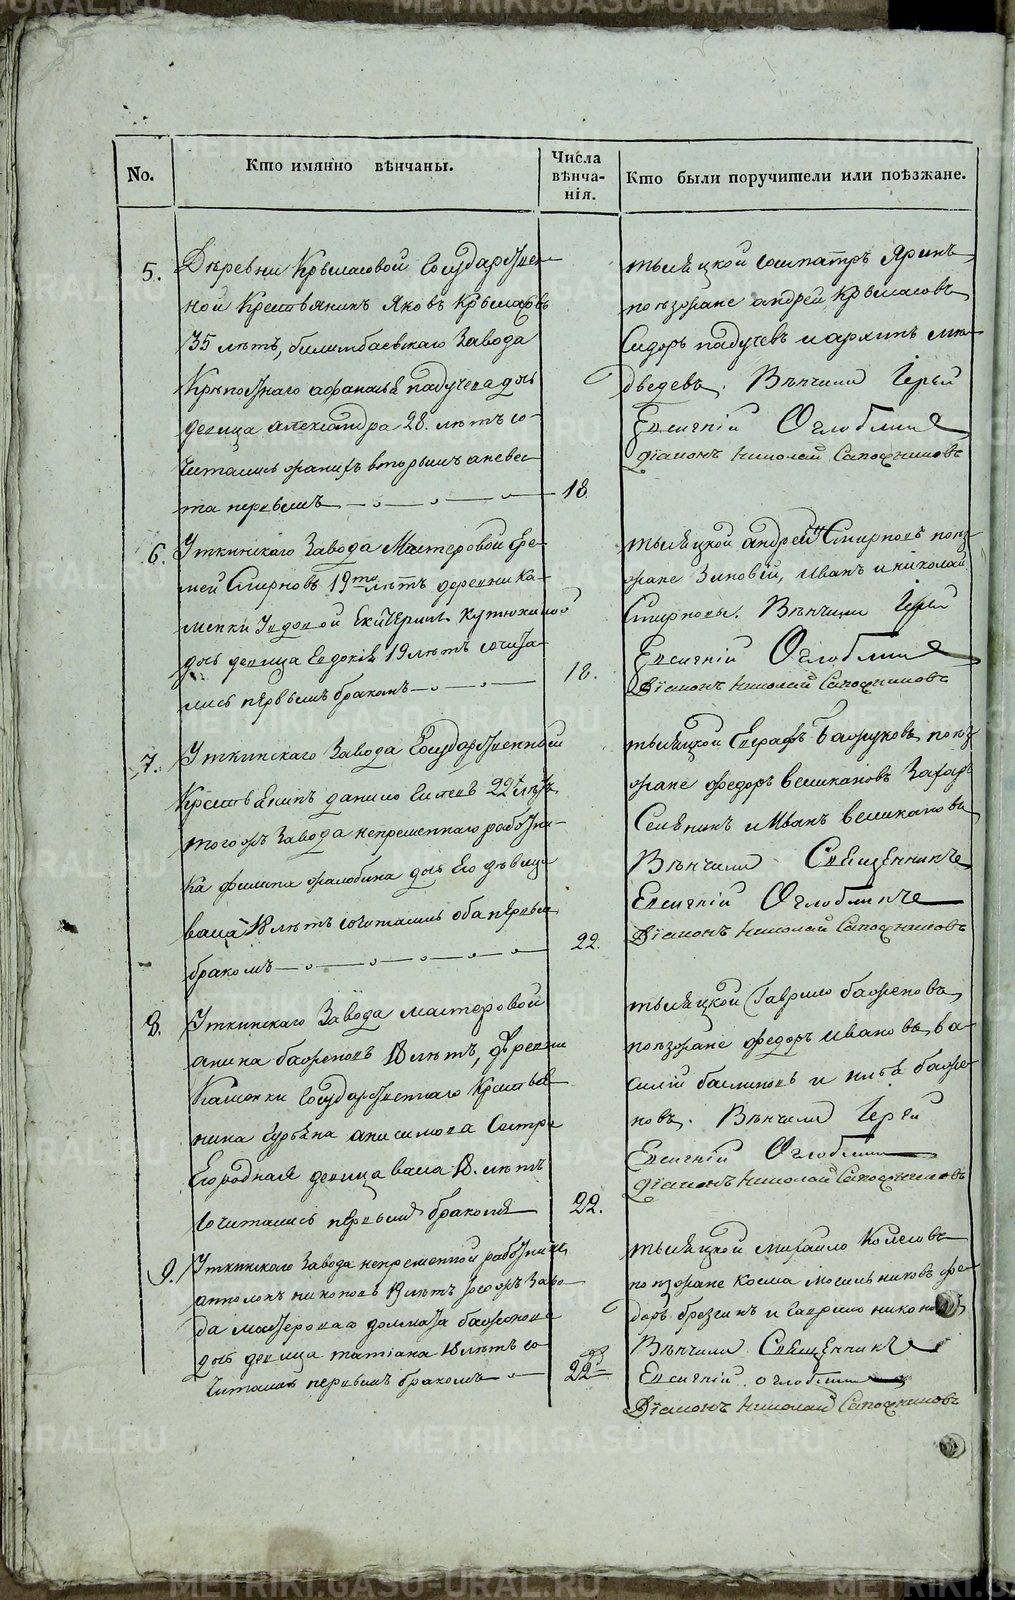 No.
Кто имянно вѣнчаны.
Числа
вѣнча-
нія.
Кто были поручители или поѣзжане.
5.
Деревни Крыласовой Государствен-
ной Крестьянинъ Яковъ Крыласовъ
35 лѣтъ, билимбаевскаго Завода
Крѣпостнаго афанасья падучева дочь
девица александра 28. лѣтъ со-
читались женихъ вторымъ а невес-
та первымъ
18.
тысяцкой Сосипатръ Яринъ
поѣзжане андрей Крыласовъ
Сидоръ падучевъ и архипъ ме-
дведевъ. Вѣнчали Іерей
Евсигній Оглоблинъ
діаконъ Николай Сапожниковъ
6.
Уткинскаго Завода Мастеровой Ере-
мей Смирновъ 19ти лѣтъ деревни Ка-
менки Удовой Екатерины Кутюхиной
дочь девица Евдокія 19 лѣтъ сочета-
лись первымъ бракомъ
18.
тысяцкой андрей Смирновъ поѣз-
жане Зиновій, Иванъ и николай
Смирновы. Вѣнчали Іерей
Евсигній Оглоблинъ
Діаконъ Николай Сапожниковъ
7.
Уткинскаго Завода Государственный
Крестьянинъ данило 22 лѣтъ
тогожъ Завода непременнаго работни-
ка филипа жалобина дочь Его девица
васса 18 лѣтъ сочитались оба первымъ
бракомъ
22.
тысяцкой Евграфъ поѣз-
жане федоръ великановъ Захаръ
и Иванъ великановы
Вѣнчали Священникъ
Евсигній Оглоблинъ
Діаконъ Николай Сапожниковъ
8.
Уткинскаго Завода мастеровой
баженовъ 18 лѣтъ, деревни
Каменки Государственнаго Крестья-
нина анисимова Сестра
Его родная девица васса 18. лѣтъ
Сочитались первымъ бракомъ
22.
тысяцкой Гаврило баженовъ
поѣзжане федоръ ивановъ, ва-
силій и баже-
новъ. Вѣнчали Іерей
Евсигній Оглоблинъ
діаконъ Николай Сапожниковъ
9.
Уткинскаго Завода непременной работникъ
никоновъ 19 лѣтъ тогожъ Заво-
да мастероваго долмата баженова
дочь девица татіана 18 лѣтъ со-
читались первымъ бракомъ
22
тысяцкой михайло
поѣзжане Косма фе-
доръ и Гаврило никоновъ
Вѣнчали Священникъ
Евсигній оглоблинъ
Діаконъ Николай Сапожниковъ
METRIKI.GASU-URAL.RU